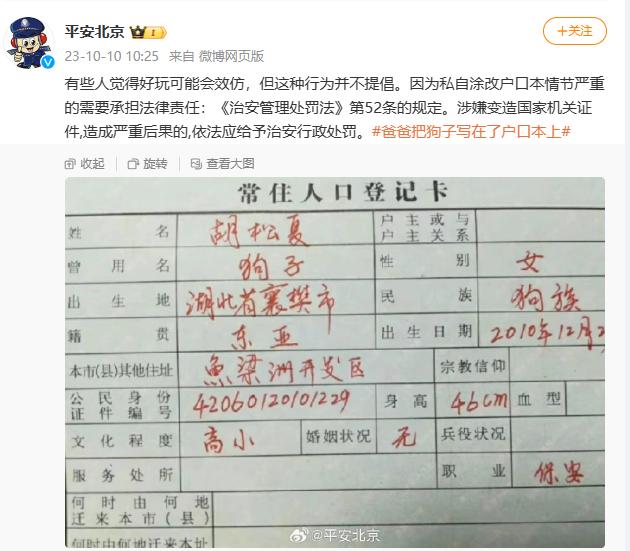 平安北京
+关注
23-10-10 10:25 来自 微博网页版
有些人觉得好玩可能会效仿，但这种行为并不提倡。因为私自涂改户口本情节严重
的需要承担法律责任：《治安管理处罚法》第52条的规定。涉嫌变造国家机关证
件,造成严重后果的,依法应给予治安行政处罚。#爸爸把狗子写在了户口本上#
收起 旋转 查看大图
常住人口登记卡
姓名 胡松夏 户主或与户主关系
曾用名 狗子 性别 女
出生地 湖北省襄樊市 民族 狗族
籍贯 东亚 出生日期 2010年12月2
本市(县)其他住址 鱼梁洲开发区 宗教信仰
公民身份证件编号 42060120101229 身高 46cm 血型
文化程度 高小 婚姻状况 无 兵役状况
服务处所 职业 保安
何时由何地迁来本市(县)
何时由何地迁来本址
@平安北京